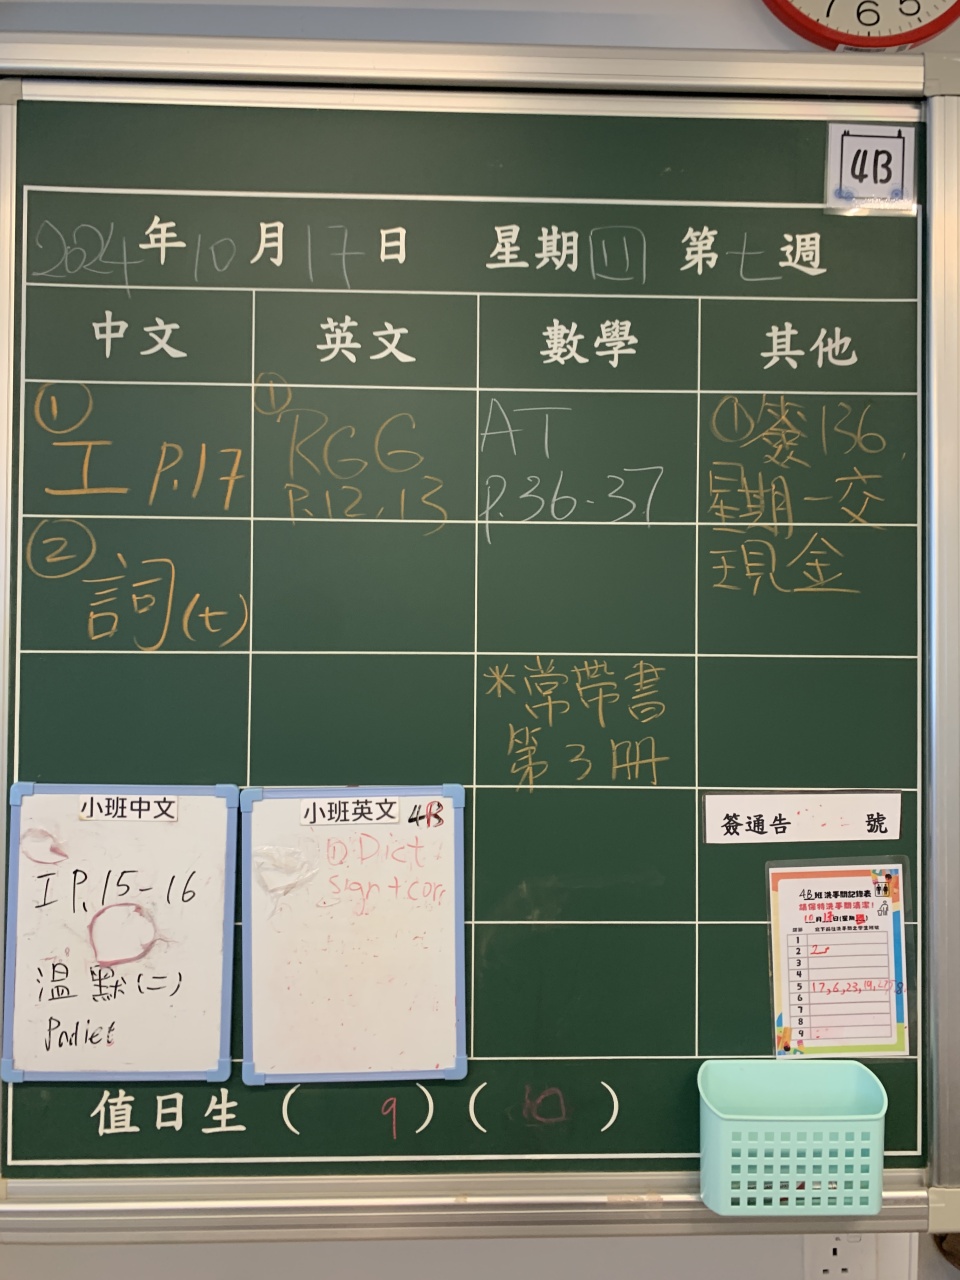 7 6 5
4B
2024年10月17日 星期四 第七週
中文 英文 數學 其他
①
工 P.17
②
詞(七)
①
RGG
P.12,13
AT
P.36-37
*常帶書
第3冊
①簽136,
星期一交
現金
小班中文
工 P.15-16
溫默(二)
小班英文 4B
① Dict
sign + corr
簽通告 號
4B班洗手間記錄表
請保持洗手間清潔!
1
2
3
4
5 17,6,23,19,
6
7
8
9
值日生 ( 9 ) ( 10 )